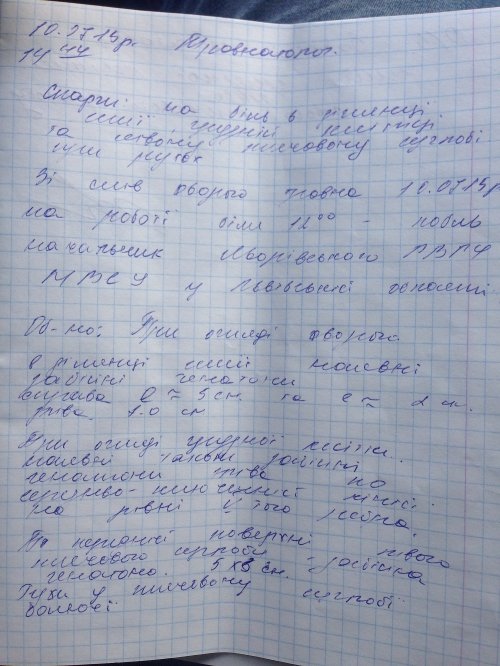 10.07.15р. Травматолог.
14 44
Скарги на біль в ділянці
шиї грудній клітці
та лівому плечовому суглобі
при рухах
Зі слів хворого травма 10.07.15р
на роботі біля 12 00 - побив
начальник Яворівського РВ ГУ
МВСУ у Львівській області
Об-но: При огляді хворого
в ділянці шиї наявні
забійні гематоми
справа ℓ ≈ 5 см. та ℓ ≈ 2 см.
зліва 1.0 см
При огляді грудної клітки
наявні також забійні
гематоми зліва по
середньо-ключичній лінії
на рівні V того ребра.
По передній поверхні лівого
плечового суглобу забійна
гематома 5х8 см.
Рухи у плечовому суглобі
болючі